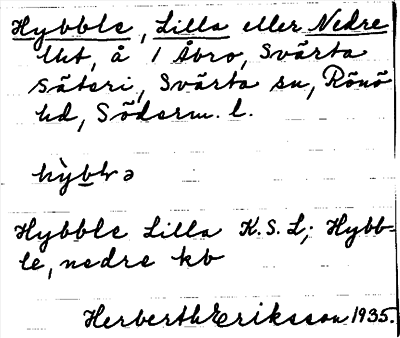 Hybble, Lilla eller Nedre
lht, å 1 Åbro, Svärta
säteri, Svärta sn, Rönö
hd, Söderm. l.
Hybble Lilla K.S.L; Hybb-
le, nedre kb
Herberth Eriksson 1935.